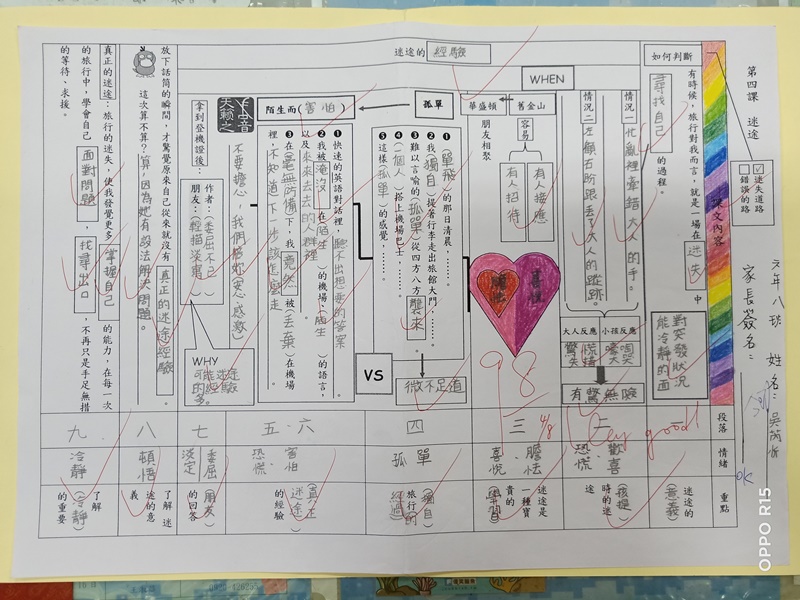 第四課 迷途
迷失道路
錯誤的路
六年八班 姓名：吳
家長簽名：
ok
課文內容
段落
情緒
重點
有時候，旅行對我而言，就是一場在迷失中
尋找自己的過程。
對突發狀況
能冷靜的面
迷途的
(意義)
如何判斷
迷途的經驗
WHEN
舊金山
華盛頓
孤單
陌生而(害怕)
情況一 忙亂裡牽錯大人的手。
情況二 左顧右盼跟丟了大人的蹤跡。
大人反應
小孩反應
驚失
慌措
嚎大
啕哭
有驚無險
二
歡喜
恐慌、
(孩提)
時的迷
途
容易
有人接應
有人招待
朋友相聚
喜悅
膽怯
98
4/8
Very good!
三
膽怯
喜悅、
迷途是
一種寶
貴的
(學習)
❶(單飛)的那日清晨，……
❷我(獨自)提著行李走出旅館大門，……
❸難以言喻的(孤單)從四方八方襲來。
❹(一個人)搭上機場巴士……
❺這樣(孤單)的感覺，……
微不足道
VS
四
孤單
(獨自)
旅行的
(經過)
❶快速的英語對話裡，聽不出想要的答案
❷我被淹沒在陌生的機場(陌生)的語言，
以及來來去去的人群裡
❸在(毫無防備)下，我竟然被(丟棄)在機場
裡，不知道下一步該怎麼走
五、六
害怕
恐慌、
(真正)
(迷途)
的經驗
天籟之音
拿到登機證後：
不要擔心，我們幫妳(安心感激)
作者：(委屈不已)
朋友：(輕描淡寫)
WHY
可能迷途
的經驗
多。
七
委屈
淡定
(朋友)
的回答
放下話筒的瞬間，才驚覺原來自己從來就沒有真正的迷途經驗。
這次算不算？算，因為她有設法解決問題。
八
頓悟
了解迷
途的意
義
真正的迷途：旅行的迷失，使我發覺更多掌握自己的能力，在每一次
的旅行中，學會自己面對問題，找尋出口，不再只是手足無措
的等待、求援。
九
冷靜
了解
(冷靜)
的重要
OPPO R15